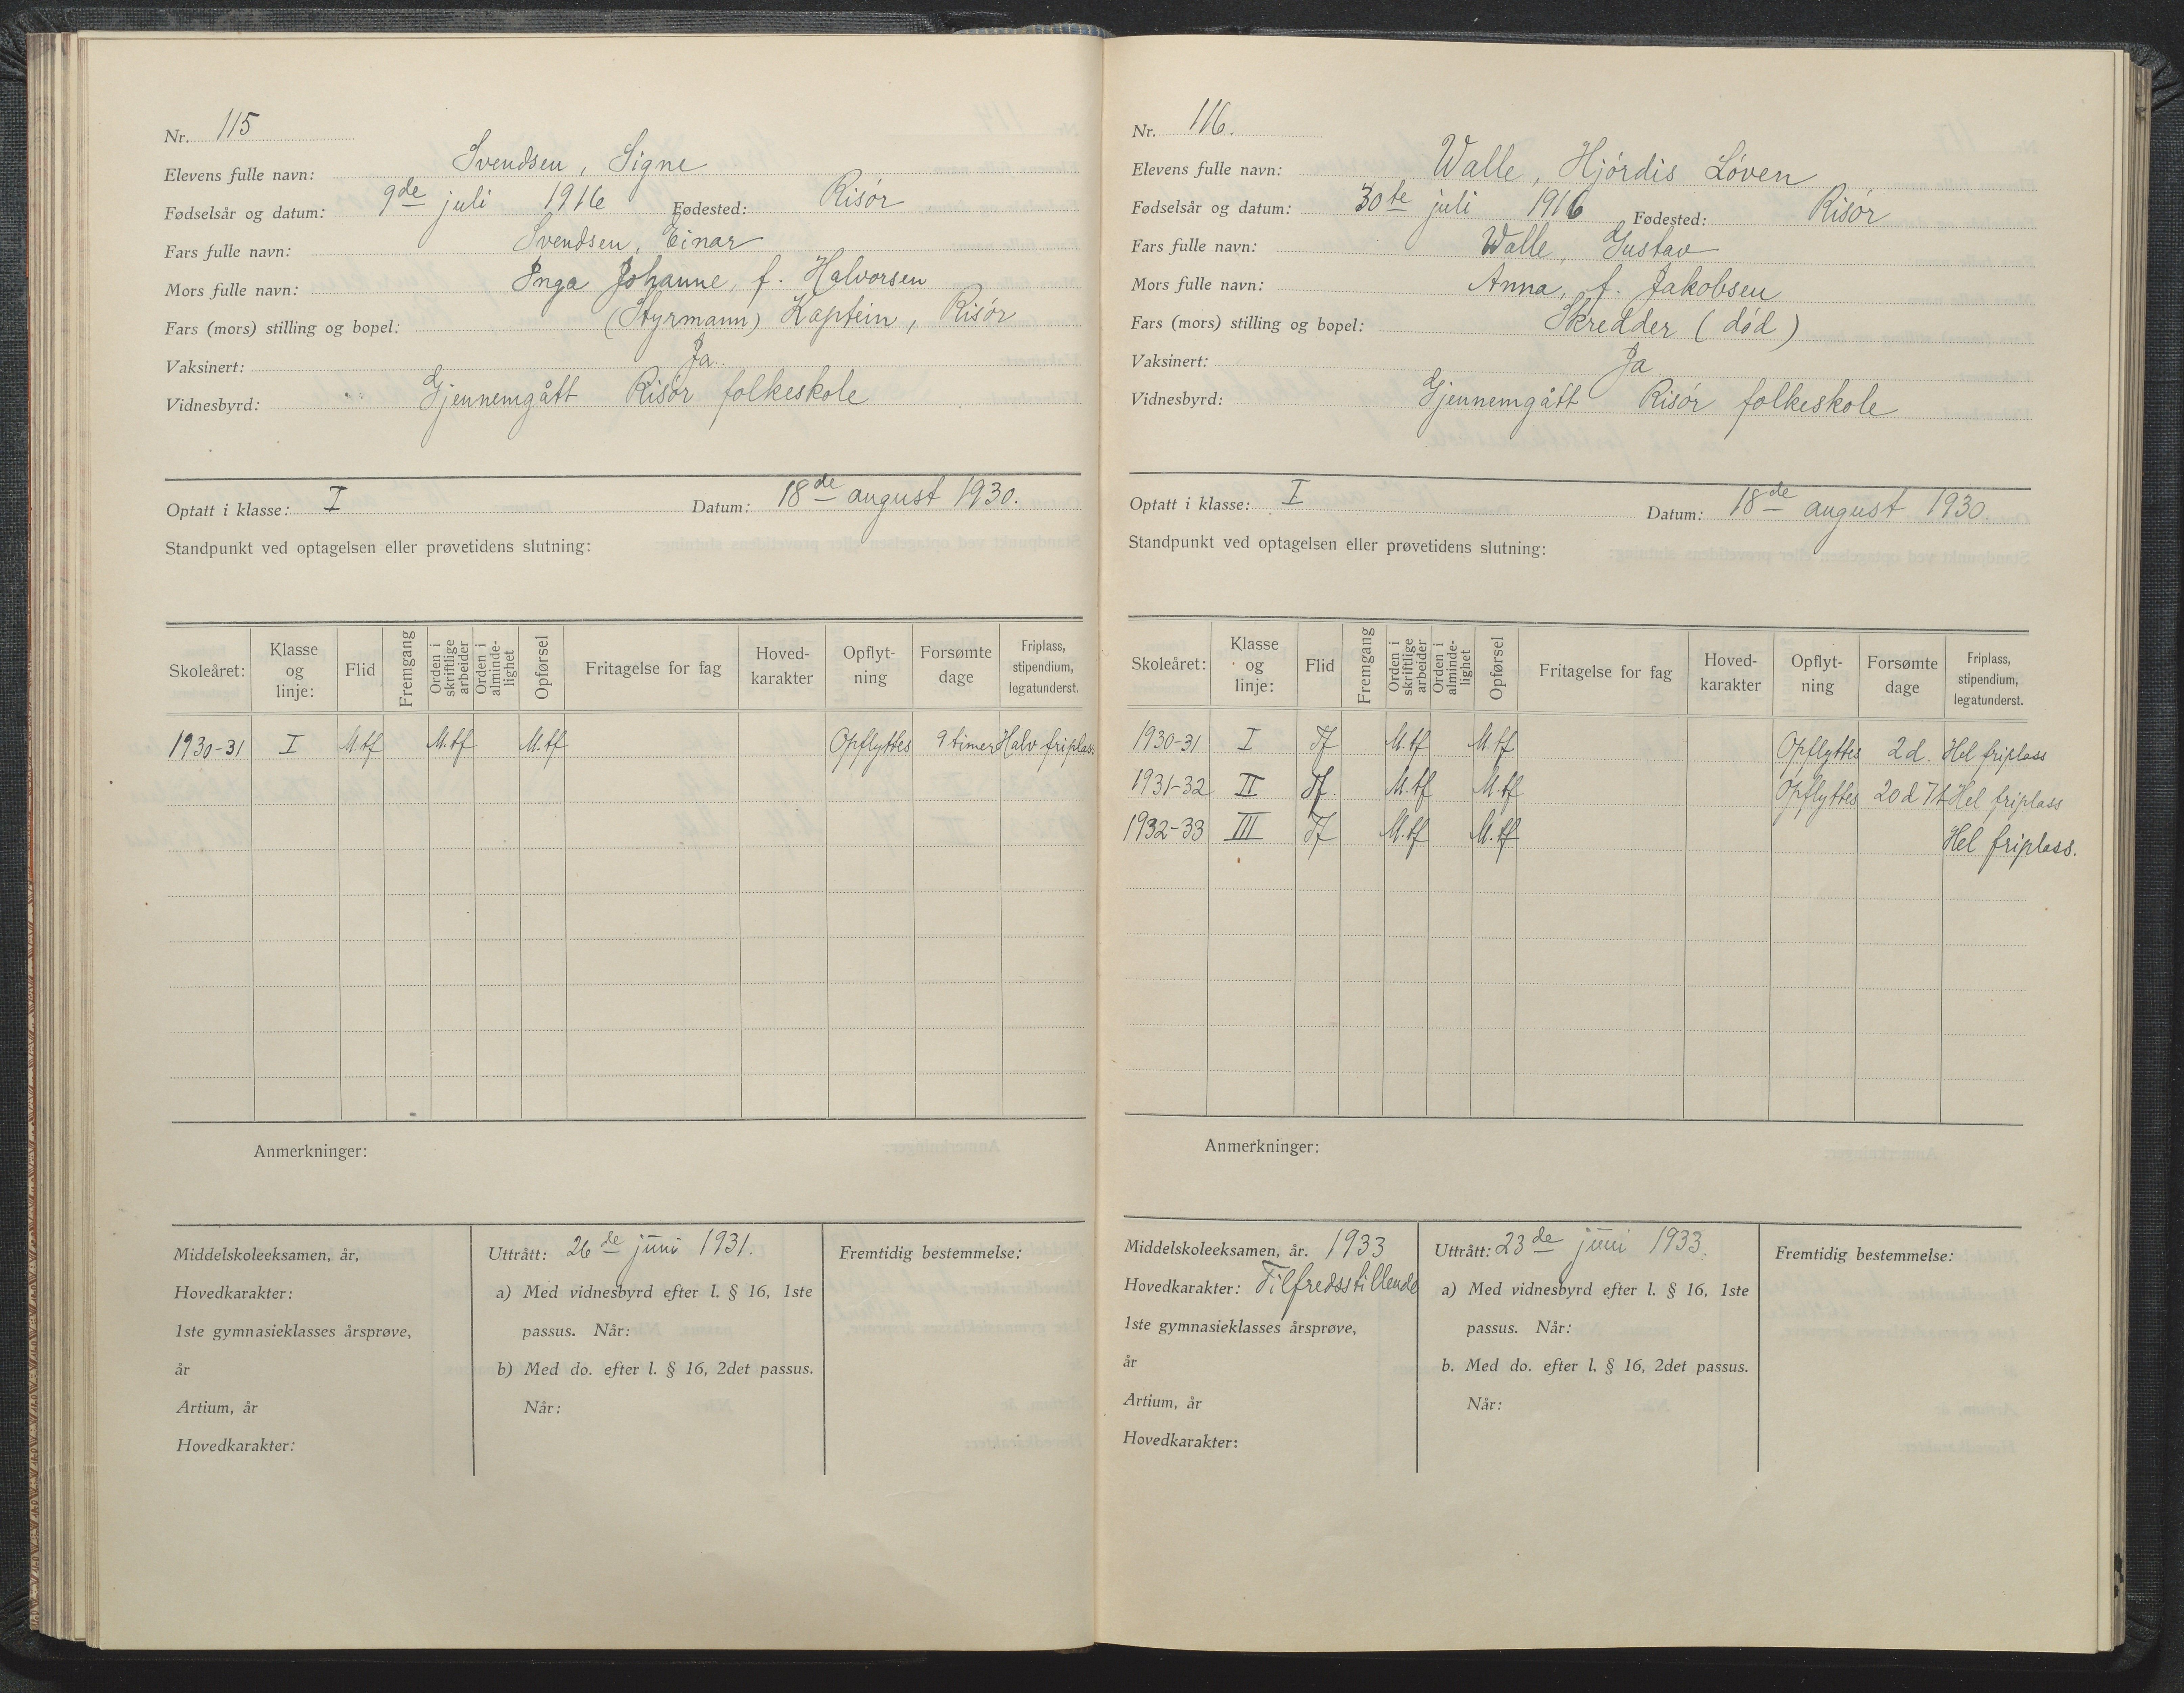 Nr. 115
Elevens fulle navn: Svendsen, Signe
Fødselsår og datum: 9de juli 1916 Fødested: Risør
Fars fulle navn: Svendsen, Einar
Mors fulle navn: Inga Johanne, f. Halvorsen
Fars (mors) stilling og bopel: (Styrmann) Kaptein, Risør
Vaksinert: Ja
Vidnesbyrd: Gjennemgått Risør folkeskole
Optatt i klasse: I Datum: 18de august 1930.
Standpunkt ved optagelsen eller prøvetidens slutning:
Skoleåret: Klasse og linje: Flid Fremgang Orden i skriftlige arbeider Orden i alminde-lighet Opførsel Fritagelse for fag Hoved-karakter Opflyt-ning Forsømte dage Friplass, stipendium, legatunderst.
1930-31 I M.tf M.tf M.tf Opflyttes 9 timer Halv friplass
Anmerkninger:
Middelskoleeksamen, år,
Hovedkarakter:
1ste gymnasieklasses årsprøve,
år
Artium, år
Hovedkarakter:
Uttrått: 26de juni 1931.
a) Med vidnesbyrd efter l. § 16, 1ste
passus. Når:
b) Med do. efter l. § 16, 2det passus.
Når:
Fremtidig bestemmelse:
Nr. 116.
Elevens fulle navn: Walle, Hjórdis Løven
Fødselsår og datum: 30te juli 1916 Fødested: Risør
Fars fulle navn: Walle, Gustav
Mors fulle navn: Anna, f. Jakobsen
Fars (mors) stilling og bopel: Skredder (død)
Vaksinert: Ja
Vidnesbyrd: Gjennemgått Risør folkeskole
Optatt i klasse: I Datum: 18de august 1930
Standpunkt ved optagelsen eller prøvetidens slutning:
Skoleåret: Klasse og linje: Flid Fremgang Orden i skriftlige arbeider Orden i alminde-lighet Opførsel Fritagelse for fag Hoved-karakter Opflyt-ning Forsømte dage Friplass, stipendium, legatunderst.
1930-31 I Tf M.tf M.tf Opflyttes 2 d. Hel friplass
1931-32 II Tf. M.tf M.tf Opflyttes 20 d 7 t Hel friplass
1932-33 III Tf M.tf M.tf Hel friplass.
Anmerkninger:
Middelskoleeksamen, år. 1933
Hovedkarakter: Tilfredsstillende
1ste gymnasieklasses årsprøve,
år
Artium, år
Hovedkarakter:
Uttrått: 23de juni 1933.
a) Med vidnesbyrd efter l. § 16, 1ste
passus. Når:
b. Med do. efter l. § 16, 2det passus.
Når:
Fremtidig bestemmelse: